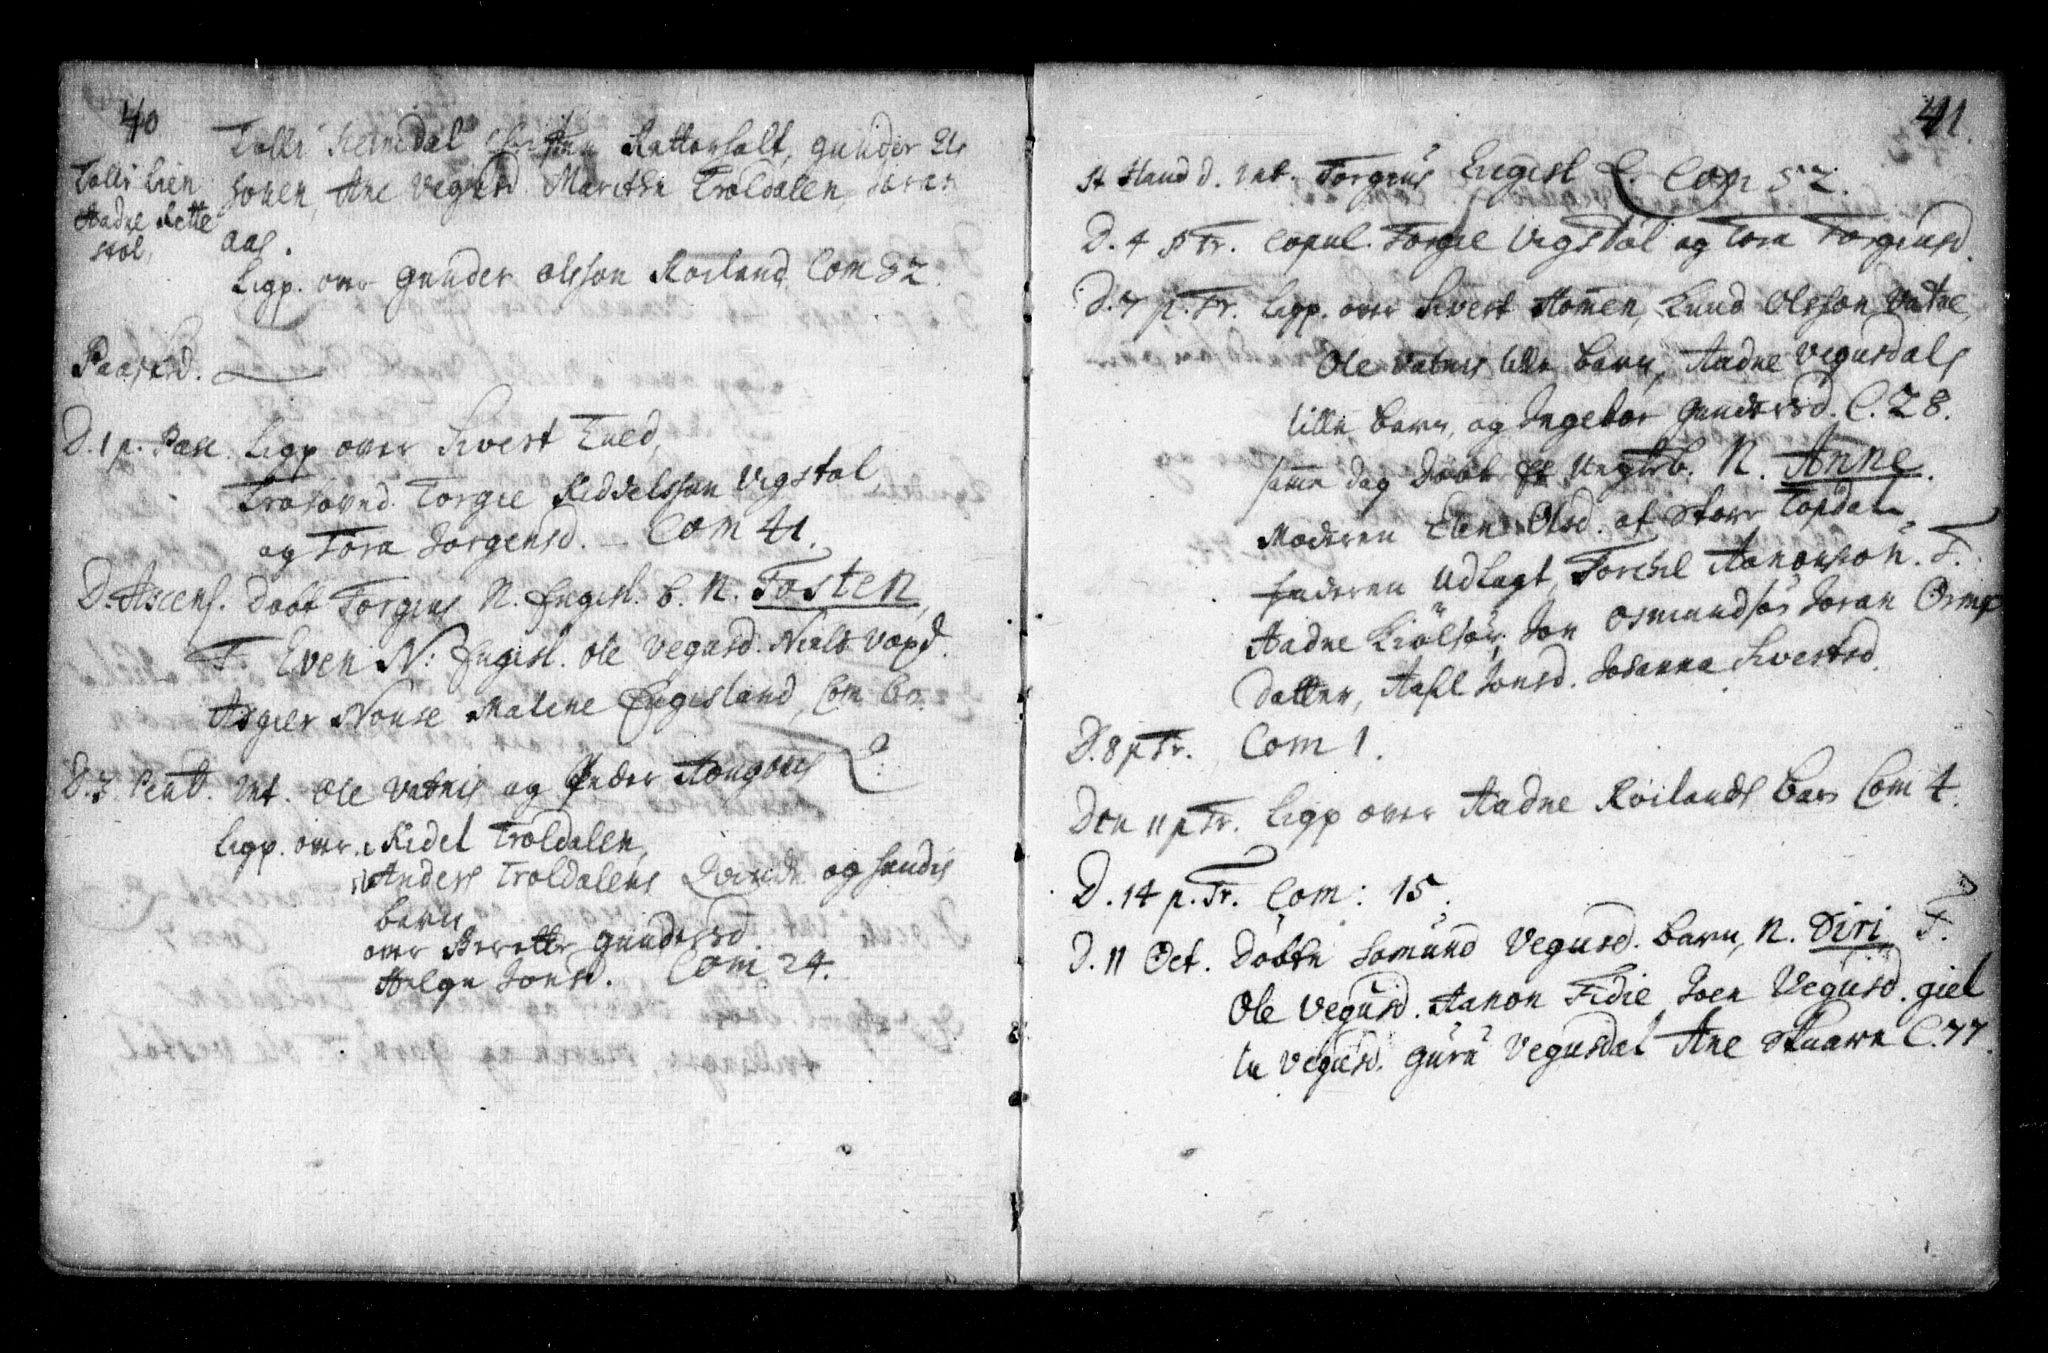 40
Tolli Heimdal Christen Retterholt, gunder Ols
Tolli Lien
sonen, Ane Vegusd. Marithe Troldalen, Joran
Aadne Rette
stöl,
aas.
Ligp. over gunder olsson Röiland. Com 32.
Paaske d.
D. 1 p. Pasc. Ligp over Sivert Tued,
Troloved. Torgie Keddelsson Vigstøl,
og Tora Jorgensd. Com 41.
D. Ascens. döbt Torgius N. Engisl. b. N. Tosten,
F. Even N: Engisl. ole Vegusd. Niels Vopd.
Asgier Nouse Malene Engisland, Com 60.
D. 3 Pent. int. ole Vatnis og Peder
Ligp. over. Kidel Troldalen,
Anders Troldalens Qvinde og hendis
barn
over Berette gundersd.
Helge Jonsd. Com 24.
41.
St Hans d. int. Torgius Engisl Q. Com 52.
D. 4 p Tr. Copul. Torgie Vigstøl og Tora Torgensd.
D. 7 p. Tr. Ligp. over Sivert Homen, Knud Olsson Vatne,
Ole Vatnes lille barn, Aadne Vegusdals
lille barn, og Ingebor gundersd. C. 28.
samme dag döbt et Uegteb. N. Anne.
Moderen Elen Olsd. af Store Topdal
faderen Udlagt, Torchil Aanonsön. F.
Aadne Kiölsön, Jon Osmundsön Joran Orms
datter, Aasil Jonsd. Johanna Sivertsd.
D. 8 p Tr. Com 1.
Den 11 p Tr. Ligp over Aadne Röilands barn Com 4.
D. 14 p. Tr. Com: 15.
D. 11 Oct. Döbte Somund Vegusd. barn, N. Siri F.
Ole Vegusd. Aanon Fidie Joen Vegusd. giel
le Vegusd. guru Vegusdal Ane Skaare C. 77.